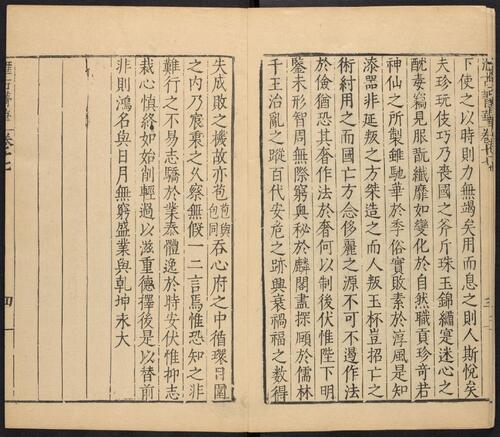 三
下使之以時則力無竭矣用而息之則人斯悅矣
夫珍玩伎巧乃喪國之斧斤珠玉錦繡寔迷心之
酖毒竊見服翫纖靡如變化於自然職貢珍奇若
神仙之所製雖馳華於季俗實敗素於淳風是知
漆器非延叛之方桀造之而人叛玉杯豈招亡之
術紂用之而國亡方念侈麗之源不可不遏作法
於儉猶恐其奢作法於奢何以制後伏惟陛下明
鑒未形智周無際窮奧秘於麟閣盡探賾於儒林
千王治亂之蹤百代安危之跡興衰禍福之數得
失成敗之機故亦苞苞與包同吞心府之中循環目圍
之內乃宸衷之久察無假一二言焉惟恐知之非
難行之不易志驕於業泰體逸於時安伏惟抑志
裁心慎終如始削輕過以滋重德擇後是以替前
非則鴻名與日月無窮盛業與乾坤永大
卷之七 四